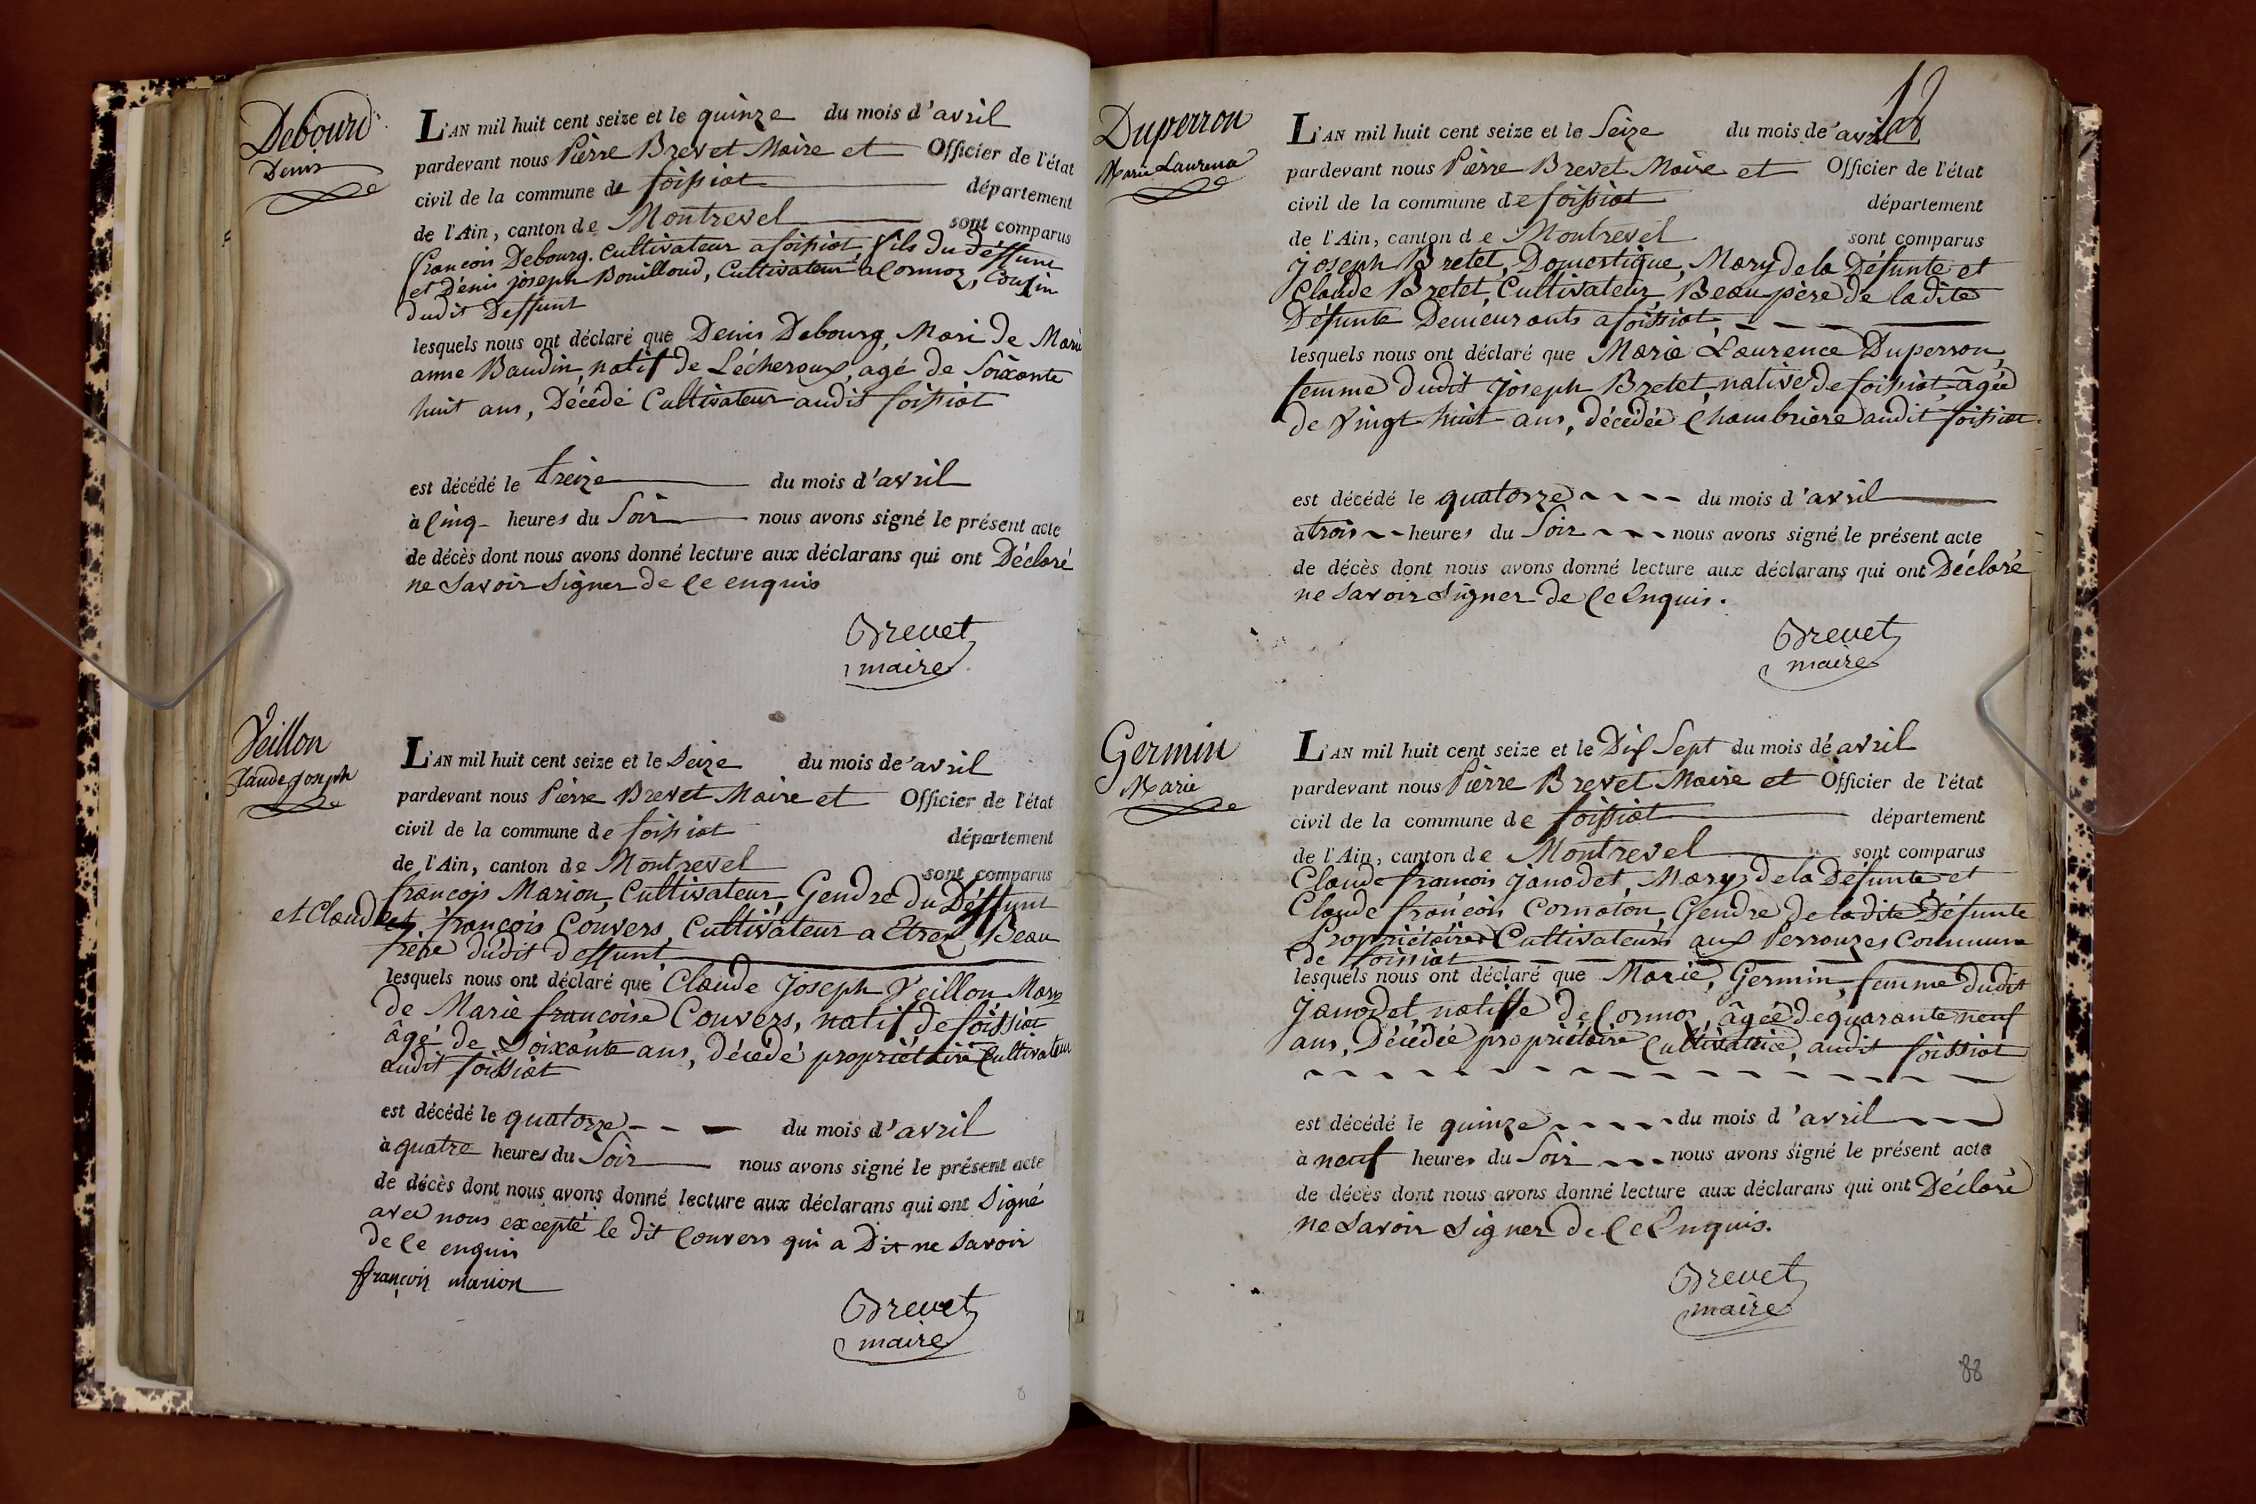 Debourg
Denis
L'AN mil huit cent seize et le quinze du mois d'avril
pardevant nous Pièrre Brevet Maire et Officier de l'état
civil de la commune de foissiat département
de l'Ain, canton de Montrevel sont comparus
françois Debourg. Cultivateur a foissiat, fils du Déffunt
et Dénis joseph Bouilloud, Cultivateur a Cormoz, Cousin
dudit Deffunt
lesquels nous ont déclaré que Denis Debourg, Mari de Marie
anne Baudin, natif de Lécheroux, agé de Soixante
huit ans, Décédé Cultivateur audit foissiat
est décédé le treize du mois d'avril
à Cinq heures du Soir nous avons signé le présent acte
de décès dont nous avons donné lecture aux déclarans qui ont Déclaré
ne Savoir Signer de Ce enquis
Brevet
maire
Veillon
Claude Joseph
L'AN mil huit cent seize et le Seize du mois de avril
pardevant nous Pièrre Brevet Maire et Officier de l'état
civil de la commune de foissiat département
de l'Ain, canton de Montrevel sont comparus
françois Marion Cultivateur, Gendre du Déffunt
et Claude françois Convers, Cultivateur a Etrez, Beau
frère dudit deffunt
lesquels nous ont déclaré que Claude Joseph Veillon Mary
de Marie françoise Convers, natif de foissiat
âgé de Soixante ans, décédé propriétaire Cultivateur
audit foissiat
est décédé le quatorze du mois d'avril
à quatre heures du Soir nous avons signé le présent acte
de décès dont nous avons donné lecture aux déclarans qui ont Signé
avec nous excepté le dit Convers qui a Dit ne Savoir
de Ce enquis
françois marion
Brevet
maire
8
Duperron
Marie Laurence
L'AN mil huit cent seize et le Seize du mois de avril
pardevant nous Pièrre Brevet Maire et Officier de l'état
civil de la commune de foissiat département
de l'Ain, canton de Montrevel sont comparus
joseph Bretet, Domestique, Mary de la Défunte et
Claude Bretet, Cultivateur, Beau père de la dite
Défunte Demeurants a foissiat,
lesquels nous ont déclaré que Marie Laurence Duperron,
femme dudit joseph Bretet, native de foissiat, âgée
de Vingt huit ans, décédée Chambrière audit foissiat.
est décédé le quatorze du mois d'avril
à trois heures du Soir nous avons signé le présent acte
de décès dont nous avons donné lecture aux déclarans qui ont Déclaré
ne Savoir Signer de Ce Enquis.
Brevet
maire
Germin
Marie
L'AN mil huit cent seize et le Dix Sept du mois dé avril
pardevant nous Pièrre Brevet Maire et Officier de l'état
civil de la commune de foissiat département
de l'Ain, canton de Montrevel sont comparus
Claude françois Janodet, Mary de la Défunte et
Claude françois Cornaton, Gendre de la dite Défunte
Propriétaires Cultivateurs aux Perrouzes Commune
de foissiat
lesquels nous ont déclaré que Marie, Germin, femme dudit
Janodet, native de Cormoz, âgée de quarante neuf
ans, Décédée propriétaire Cultivatrice, audit foissiat
est décédé le quinze du mois d'avril
à neuf heures du Soir nous avons signé le présent acte
de décès dont nous avons donné lecture aux déclarans qui ont Déclaré
ne Savoir Signer de Ce Enquis.
Brevet
maire
88